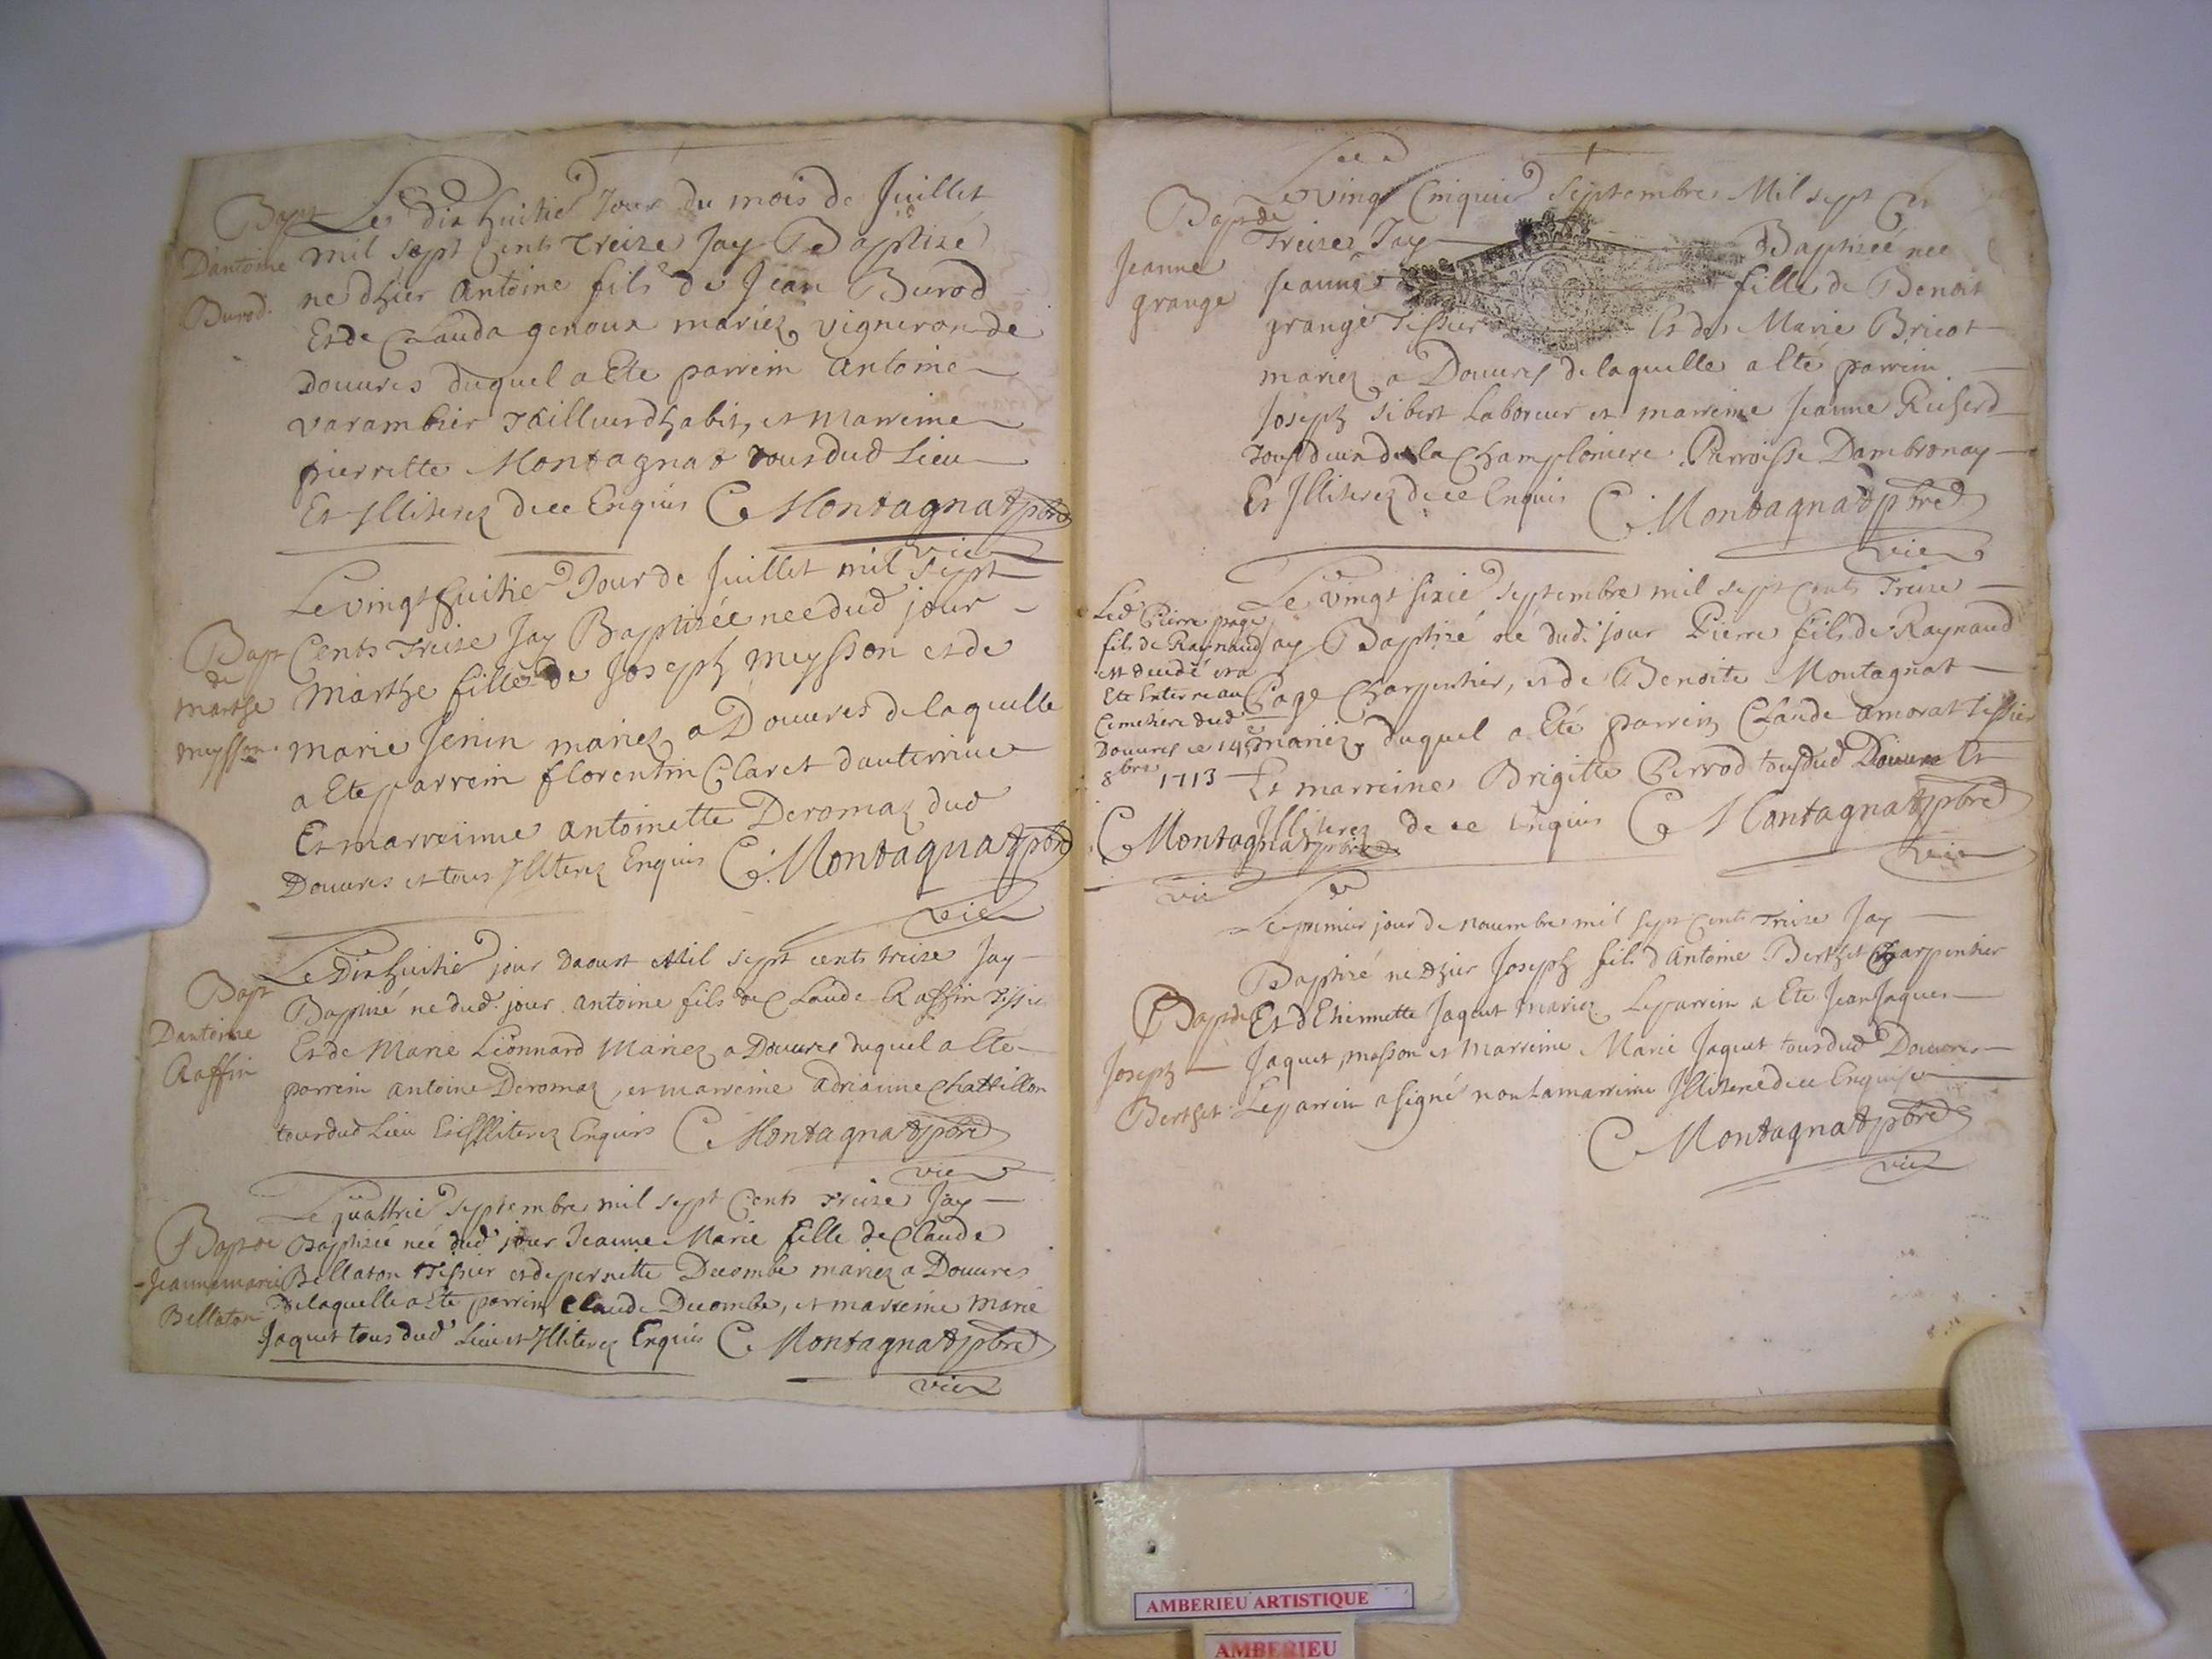 Bapt
D'antoine
Burod.
Le dix huitie Jour du mois de Juillet
mil sept Cents Treize Jay Baptizé
ne d'hier Antoine fils de Jean Burod
Et de Clauda genoux mariez vigneron de
Douures duquel a Ete parrein Antoine
varambier Tailleur dhabit, et Marreine
pierrette Montagnat tous dud Lieu
Et Illiterez de ce Enquis C. Montagnat pbre
vic
Bapt
de
Marthe
Meysson.
Le vingt huitie Jour de Juillet mil sept
Cents Treize Jay Baptizée nee dud jour
Marthe fille de Joseph Meysson et de
Marie Jenin mariez a Douures de laquelle
a Ete parrein florentin Claret dauterriue
Et marreinne antoinette Deromaz dud
Douures et tous Illiterez Enquis C. Montagnat pbre
vic
Bapt
Dantoine
Raffin
Le Dix huitie jour daoust Mil sept cents treize Jay
Baptizé ne dud. jour antoine fils de Claude Raffin Tissier
Et de Marie Lionnard Mariez a Douures duquel a Ete
parrein antoine Deromaz, et marreine adrianne Chattillon
tous dud Lieu Et Illiterez Enquis C. Montagnat pbre
vic
Bapt de
Jeanne marie
Bellaton
Le quattrie septembre mil sept Cents treize Jay
Baptizée neé dud jour Jeanne Marie fille de Claude
Bellaton Tissier et de pernette Decombe mariez a Douures
de laquelle a Ete parrein Claude Decombe, et marreine Marie
Jaquet tous dud Lieu et Illiterez Enquis C. Montagnat pbre
vic
Bapt de
Jeanne
grange
Le vingt Cinquie Septembre Mil sept Cts
Treize Jay Baptizeé neé
Jeanne fille de Benoit
grange Tissier Et de Marie Bricot
mariez a Douures de laquelle a Eté parrein
Joseph Sibert Laboreur et marreine Jeanne Richerd
tous deux de la Champloniere Parroisse Dambronay
Et Illiterez de ce Enquis C. Montagnat pbre
vic
Led Pierre page
fils de Raynaud
est decedé et a
Ete Enterre au
Cimetiere dud
Douures ce 14e
8bre 1713
C. Montagnat pbre
vic
Le vingt sixie septembre mil sept cents Treize
Jay Baptizé né dud. jour Pierre fils de Raynaud
Page Charpentier, et de Benoite Montagnat
mariez, duquel a Eté parrein Claude amorat Tissier
Et marreine Brigitte Perrod tous dud Douure Et
Illiterez de ce Enquis C. Montagnat pbre
vic
Bapt de
Joseph
Berthet
Le premier jour de nouembre mil sept Cents Treize Jay
Baptizé ne d'hier Joseph fils d'Antoine Berthet Charpentier
Et d'Ethiennette Jaquet Mariez Le parrein a Ete Jean Jaques
Jaquet, masson et Marreine Marie Jaquet tous dud Douures
Le parrein a signé non la marreine Illiteree de ce Enquise
C. Montagnat pbre
vic
AMBERIEU ARTISTIQUE
AMBERIEU